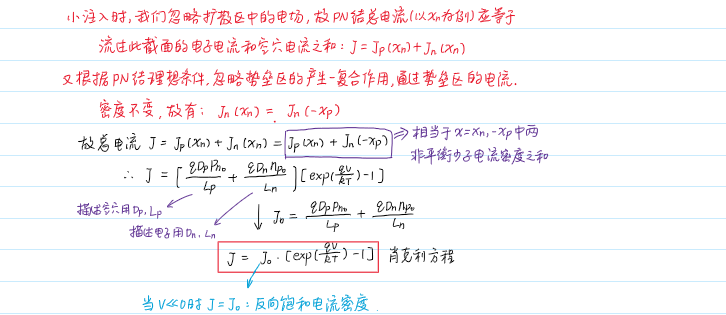 小注入时,我们忽略扩散区中的电场,故PN结总电流(以xn为例)应等于
流过此截面的电子电流和空穴电流之和:J=Jp(xn)+Jn(xn)
又根据PN结理想条件,忽略势垒区的产生-复合作用,通过势垒区的电流.
密度不变,故有: Jn(xn) = Jn(-xp)
故总电流 J = Jp(xn) + Jn(xn) = Jp(xn) + Jn(-xp) ⇒ 相当于x=xn,-xp中两
非平衡少子电流密度之和
∴ J = [qDpPn0/Lp + qDnnp0/Ln][exp(qV/kT)-1]
描述空穴用Dp,Lp
描述电子用Dn,Ln
↓ J0 = qDpPn0/Lp + qDnnp0/Ln
J = J0·[exp(qV/kT)-1] 肖克利方程
当V≪0时 J=J0:反向饱和电流密度.